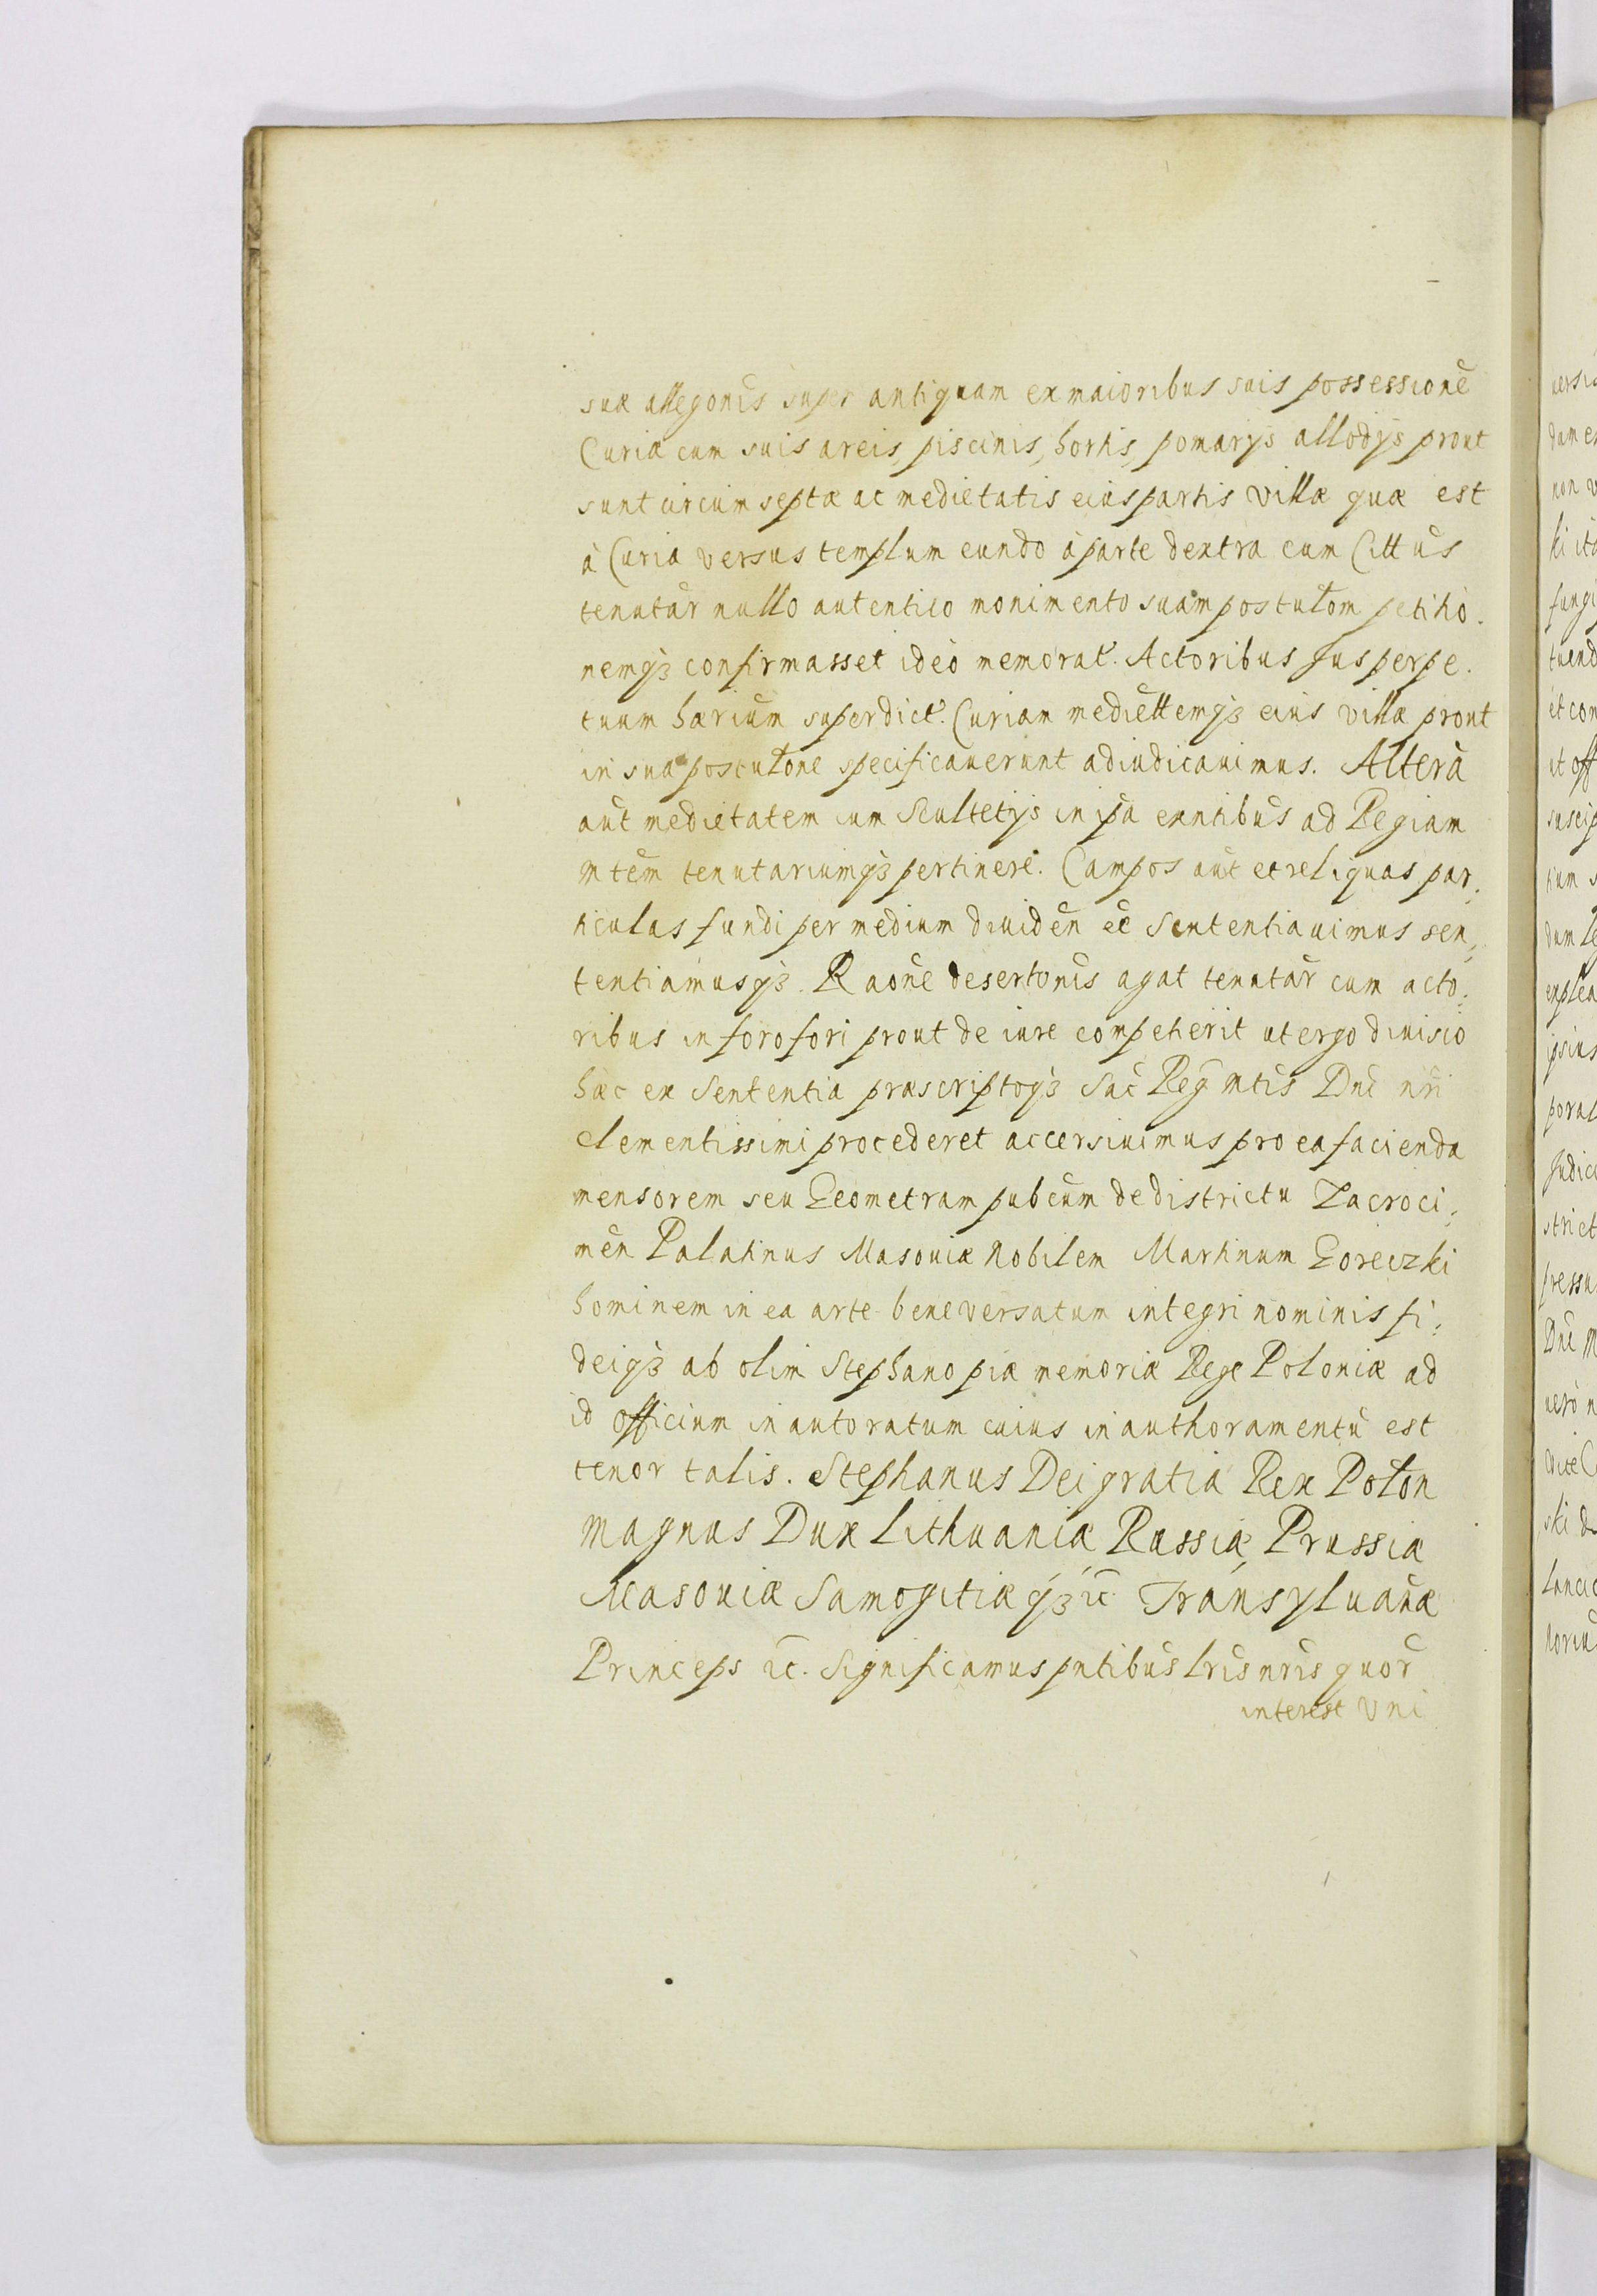 suæ allegonis super antiquam ex maioribus suis possessionē
Curiæ cum suis areis, piscinis, hortis, pomarÿs allodÿs prout
sunt circum septæ ac medietatis eius partis villæ quæ est
à Curia versus templum eundo à parte dextra cum Cittūs
tenutār nullo autentico monimento suam postułom petitio.
nemqȝ confirmasset ideò memorat. Actoribus Jus perpe.
tuum hærium super dict. Curiam medietttemqȝ eius villæ prout
in sua postułone specificauerunt adiudicauimus. Alterā
aūt medietatem cum Scultetÿs in ip̄a exntibūs ad Regiam
Mtēm tenutariumqȝ pertinere. Campos aūt et reliquas par,
ticulas fundi per medium diuidēn eē Sententiauimus sen,
tentiamusqȝ. Raōne desertonis agat tenutār cum acto:
ribus in foro fori prout de iure competierit ut ergo diuisio
hæc ex Sententia præscriptoqȝ Sac̄ Reg̃ Mtis Dnī nrī
clementissimi procederet accersiuimus pro ea facienda
mensorem seu Geometram pubcūm de districtu Zacroci:
mēn Palatinus Masouiæ Nobilem Martinum Goreczki
hominem in ea arte bene versatum integri nominis fi:
deiqȝ ab olim Stephano piæ memoriæ Rege Poloniæ ad
id officium inautoratum cuius inauthoramentū est
tenor talis. Stephanus Dei gratia Rex Połon
Magnus Dux Lithuaniæ Russiæ, Prussiæ
Masouiæ Samogitiæqȝ ꝛc̄ Transyluanæ
Princeps ꝛc̄. Significamus pntibūs Lrīs nrīs quor̄
interest vni